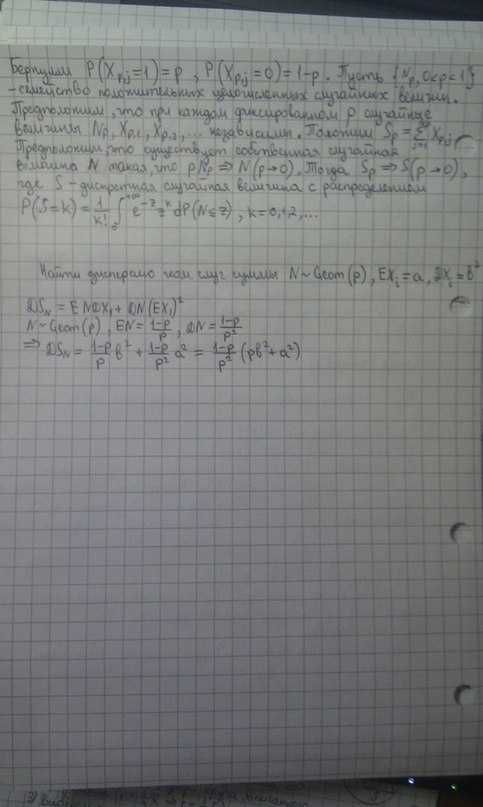 Бернулли P(X_{p,j}=1)=p, P(X_{p,j}=0)=1-p. Пусть {N_p, 0<p<1}
- семейство положительных целочисленных случайных величин.
Предположим, что при каждом фиксированном p случайные
величины N_p, X_{p,1}, X_{p,2}, ... независимы. Положим S_p = Σ_{j=1}^{N_p} X_{p,j}
Предположим, что существует собственная случайная
величина N такая, что pN_p ⇒ N (p→0). Тогда S_p ⇒ S (p→0),
где S - дискретная случайная величина с распределением
P(S=k) = 1/k! ∫_0^{+∞} e^{-z} z^k dP(N≤z), k=0,1,2,...
Найти дисперсию геом случ суммы N~Geom(p), EX_i=a, DX_i=b²
DS_N = EN DX_1 + DN(EX_1)²
N~Geom(p), EN = (1-p)/p, DN = (1-p)/p²
⇒ DS_N = (1-p)/p b² + (1-p)/p² a² = (1-p)/p² (pb²+a²)